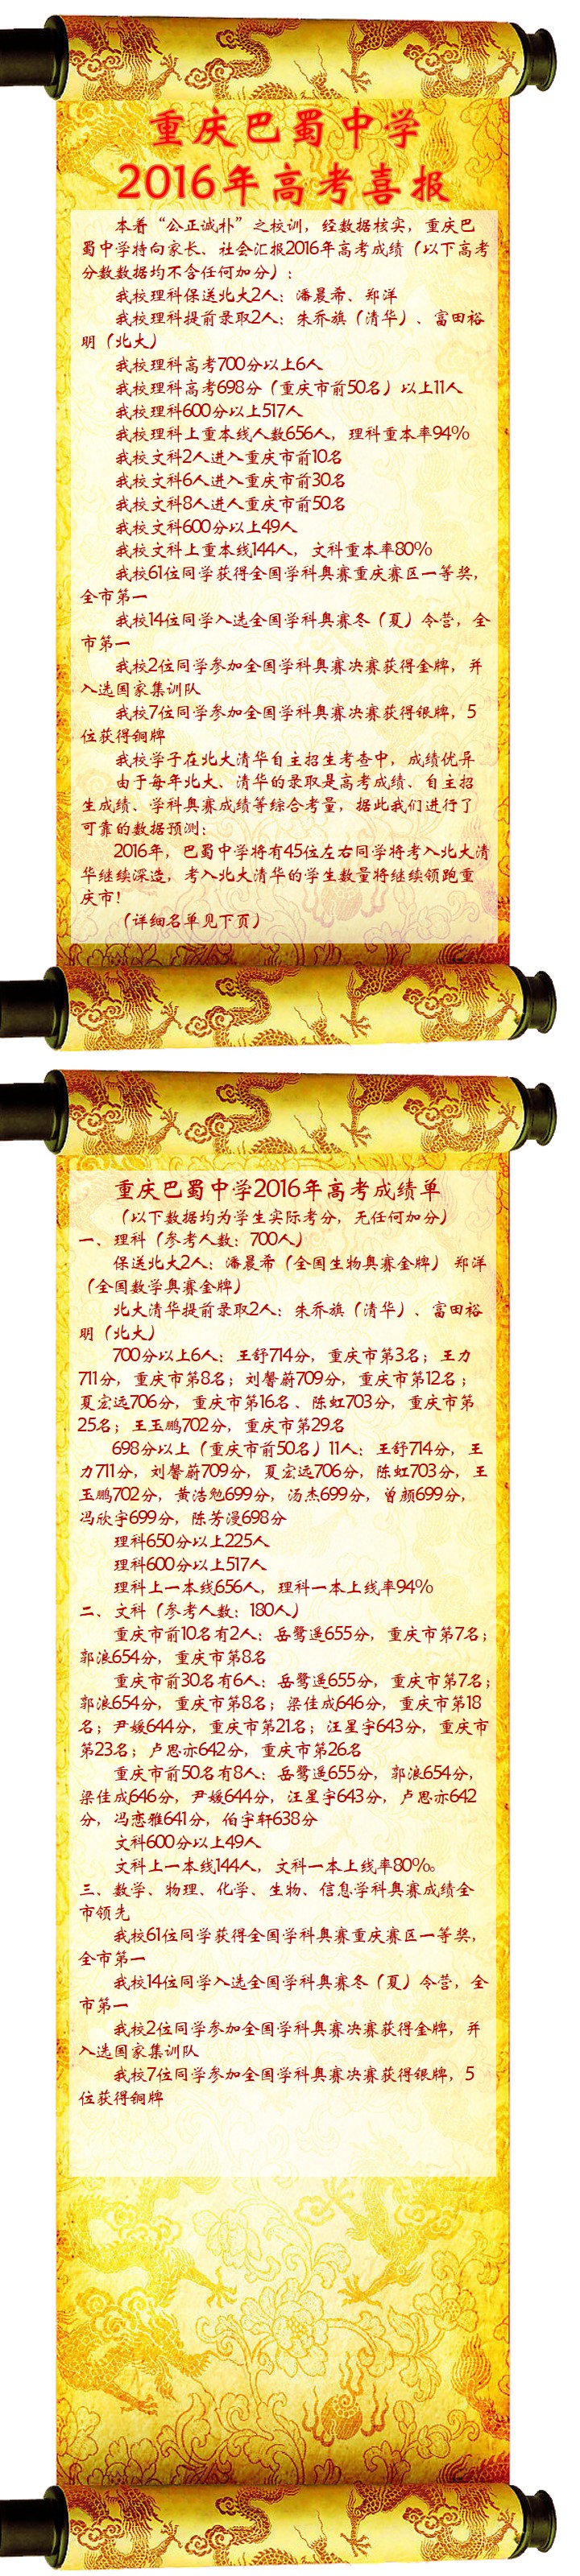 重庆巴蜀中学
2016年高考喜报
本着“公正诚朴”之校训，经数据核实，重庆巴
蜀中学特向家长、社会汇报2016年高考成绩（以下高考
分数数据均不含任何加分）：
我校理科保送北大2人：潘晨希、郑洋
我校理科提前录取2人：朱乔旗（清华）、富田裕
明（北大）
我校理科高考700分以上6人
我校理科高考698分（重庆市前50名）以上11人
我校理科600分以上517人
我校理科上重本线人数656人，理科重本率94%
我校文科2人进入重庆市前10名
我校文科6人进入重庆市前30名
我校文科8人进人重庆市前50名
我校文科600分以上49人
我校文科上重本线144人，文科重本率80%
我校61位同学获得全国学科奥赛重庆赛区一等奖，
全市第一
我校14位同学入选全国学科奥赛冬（夏）令营，全
市第一
我校2位同学参加全国学科奥赛决赛获得金牌，并
入选国家集训队
我校7位同学参加全国学科奥赛决赛获得银牌，5
位获得铜牌
我校学子在北大清华自主招生考查中，成绩优异
由于每年北大、清华的录取是高考成绩、自主招
生成绩、学科奥赛成绩等综合考量，据此我们进行了
可靠的数据预测：
2016年，巴蜀中学将有45位左右同学将考入北大清
华继续深造，考入北大清华的学生数量将继续领跑重
庆市！
（详细名单见下页）
重庆巴蜀中学2016年高考成绩单
（以下数据均为学生实际考分，无任何加分）
一、理科（参考人数：700人）
保送北大2人：潘晨希（全国生物奥赛金牌） 郑洋
（全国数学奥赛金牌）
北大清华提前录取2人：朱乔旗（清华）、富田裕
明（北大）
700分以上6人：王舒714分，重庆市第3名；王力
711分，重庆市第8名；刘馨蔚709分，重庆市第12名；
夏宏远706分，重庆市第16名、陈虹703分，重庆市第
25名；王玉鹏702分，重庆市第29名
698分以上（重庆市前50名）11人：王舒714分，王
力711分，刘馨蔚709分，夏宏远706分，陈虹703分，王
玉鹏702分，黄浩勉699分，汤杰699分，曾颜699分，
冯欣宇699分，陈芳漫698分
理科650分以上225人
理科600分以上517人
理科上一本线656人，理科一本上线率94%
二、文科（参考人数：180人）
重庆市前10名有2人：岳鹭遥655分，重庆市第7名；
郭浪654分，重庆市第8名
重庆市前30名有6人：岳鹭遥655分，重庆市第7名；
郭浪654分，重庆市第8名；梁佳成646分，重庆市第18
名；尹媛644分，重庆市第21名；汪星宇643分，重庆市
第23名；卢思亦642分，重庆市第26名
重庆市前50名有8人：岳鹭遥655分，郭浪654分，
梁佳成646分，尹媛644分，汪星宇643分，卢思亦642
分，冯恋雅641分，伯宇轩638分
文科600分以上49人
文科上一本线144人，文科一本上线率80%。
三、数学、物理、化学、生物、信息学科奥赛成绩全
市领先
我校61位同学获得全国学科奥赛重庆赛区一等奖，
全市第一
我校14位同学入选全国学科奥赛冬（夏）令营，全
市第一
我校2位同学参加全国学科奥赛决赛获得金牌，并
入选国家集训队
我校7位同学参加全国学科奥赛决赛获得银牌，5
位获得铜牌